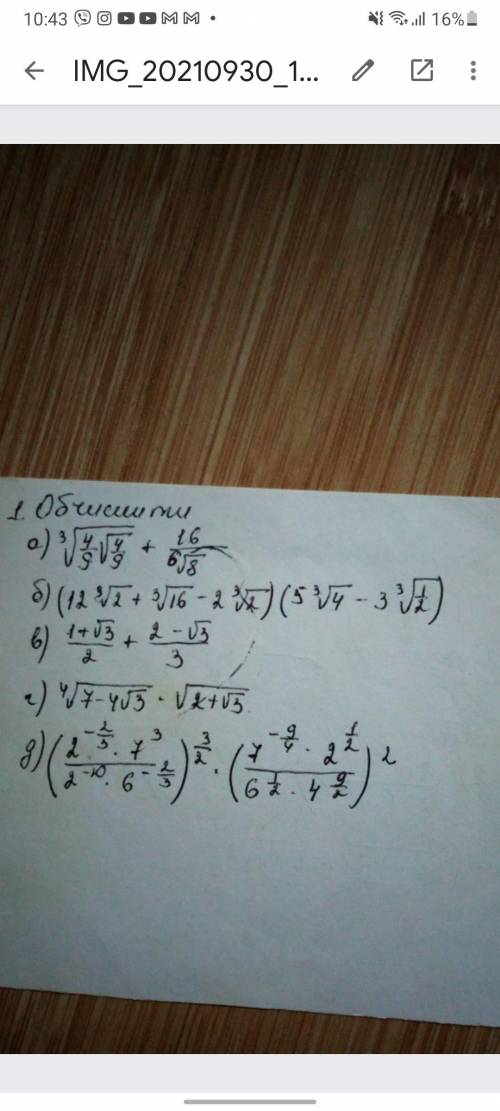 10:43 16%
IMG_20210930_1...
1. Обчислити
а) ∛(4/9 √(4/9)) + 16/⁶√8
б) (12 ∛2 + ∛16 − 2 ∛2)(5 ∛4 − 3 ∛(1/2))
в) (1+√3)/2 + (2−√3)/3
г) ⁴√(7−4√3) · √(2+√3)
д) ((2^(−2/3) · 7^3)/(2^(−10) · 6^(−2/3)))^(3/2) · ((7^(−9/4) · 2^(1/2))/(6^(1/2) · 4^(9/2)))^2